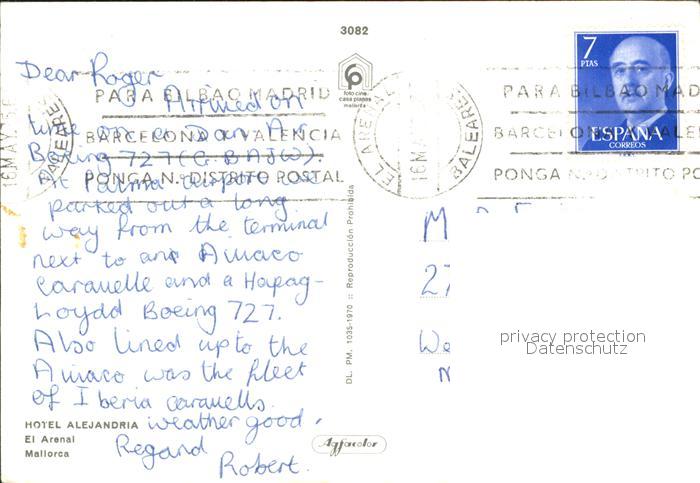 3082
Dear Roger
Arrived on
time on a Dan Air
Boeing 727 (G-BAJW).
At Palma airport we
parked out a long
way from the terminal
next to an Aviaco
Caravelle and a Hapag-
Loydd Boeing 727.
Also lined up to the
Aviaco was the fleet
of Iberia caravells.
weather good.
Regard
Robert.
HOTEL ALEJANDRIA
El Arenal
Mallorca
foto cine
casa planas
mallorca
DL. PM. 1035-1970 :: Reproducción Prohibida
Agfacolor
16 MA
BALEARES
PARA BILBAO MADRID
BARCELONA X VALENCIA
PONGA N.º DISTRITO POSTAL
EL ARENAL
16 MA
BALEARES
PARA BILBAO MAD
BARCELONA VALEN
PONGA N. DISTRITO PO
7
PTAS
ESPAÑA
CORREOS
M
27
We
privacy protection
Datenschutz